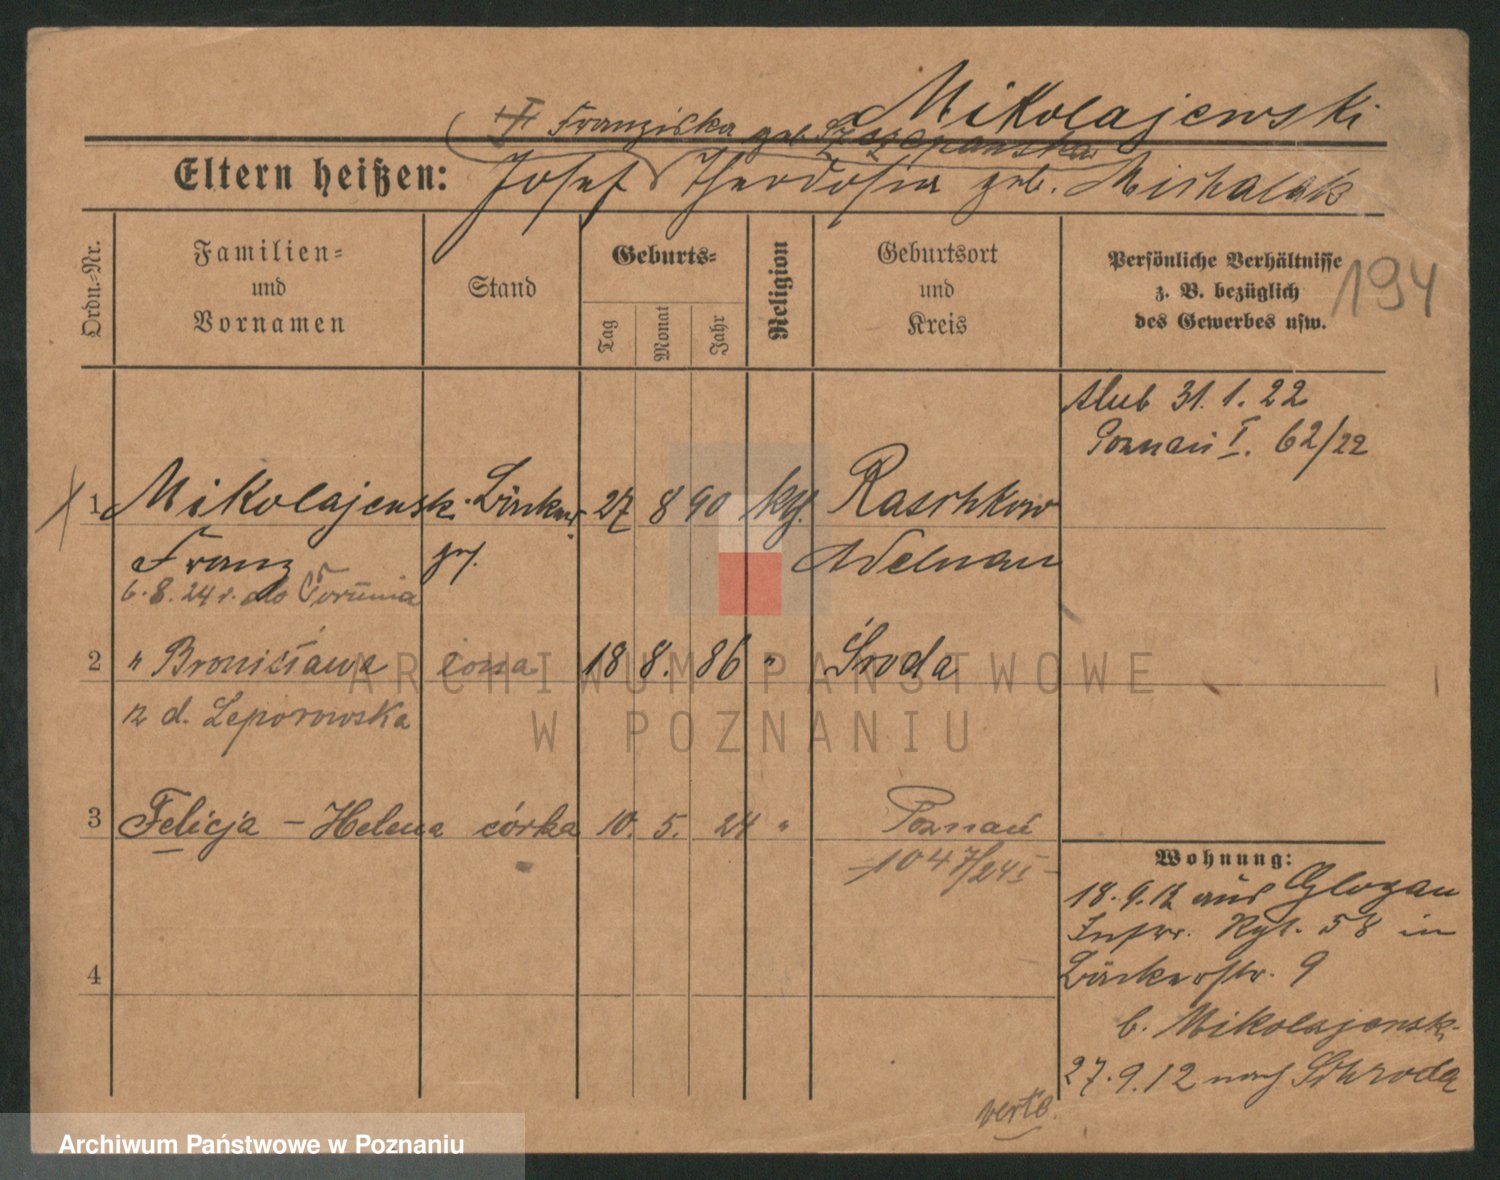 Mikolajewski
Franziska geb. Szczepanska
Eltern heißen: Josef Theodosia geb. Michalak
Ordn.-Nr.
Familien-
und
Vornamen
Stand
Geburts-
Tag
Monat
Jahr
Religion
Geburtsort
und
Kreis
Persönliche Verhältnisse
z. B. bezüglich
des Gewerbes usw.
194
ślub 31.1.22
Poznań I. 62/22
1 Mikolajewski Bäcker 27 8 90 kth. Raschkow
Franz Adelnau
6.8.24 r. do Torunia
2 " Bronisława żona 18 8. 86 " Środa
z d. Leporowska
3 Felicja - Helena córka 10. 5. 24 " Poznań
1047/24 I
4
Wohnung:
18.9.12 aus Glogau
Inftr. Rgt. 58 in
Bäckerstr. 9
b. Mikolajewski
27.9.12 nach Schroda
verte.
ARCHIWUM PAŃSTWOWE
W POZNANIU
Archiwum Państwowe w Poznaniu